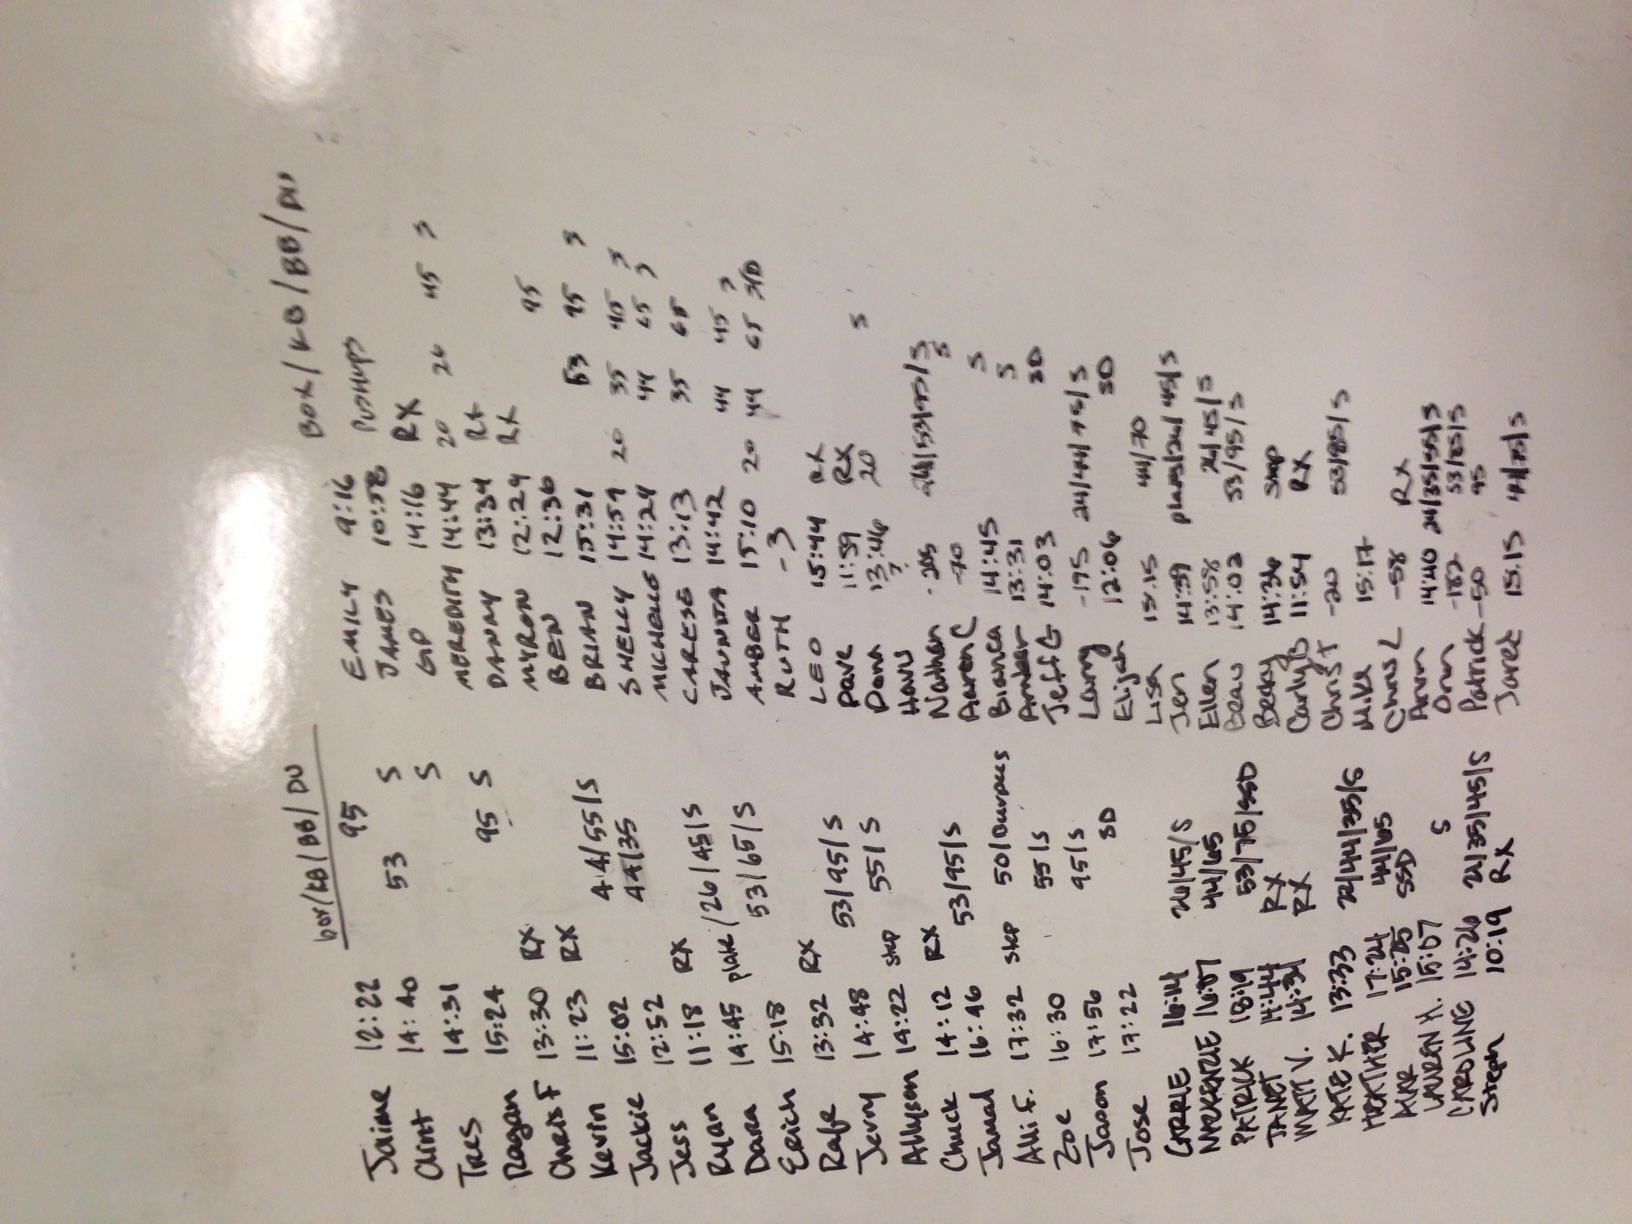 box/KB/BB/DU
Jaime 12:22 95
Clint 14:40 53 S
Tres 14:31 S
Reagan 15:24 95 S
Chris F 13:30 RX
Kevin 11:23 RX
Jackie 15:02 44/55/S
Jess 12:52 44/35
Ryan 11:18 RX
Dara 14:45 plate/26/45/S
Erich 15:18 53/65/S
Rafe 13:32 RX
Jerry 14:48 53/95/S
Allyson 14:22 step 55/S
Chuck 14:12 RX
Jamal 16:46 53/95/S
Alli F. 17:32 step 50/
Zoe 16:30 55/S
Jason 17:56 95/S
Jose 17:22 SD
CARRIE 16:14 26/45/S
MACKENZIE 16:07 44/65
PATRICK 18:19 53/75/SSD
JANET 14:44 RX
MATT V. 14:31 RX
KATE K. 13:33 22/44/35/S
HEATHER 17:24 44/65
15:25 SSD
LAUREN H. 15:07 S
CAROLINE 14:26 21/35/45/S
Steph 10:19 RX
BOX/KB/BB/DU
EMILY 9:16 PUSHUPS
JAMES 10:58 RX
GP 14:16 20 26 45 S
MEREDITH 14:44 RX
DANNY 13:34 RX
MYRON 12:29 95
BEN 12:36
BRIAN 15:31 53 95 S
SHELLY 14:59 20 35 45 S
MICHELLE 14:24 44 65 S
CARESE 13:13 35 65
JAUNITA 14:42 44 45 S
AMBER 15:10 20 44 65
RUTH -3
LEO 15:44 RX
Dave 11:59 RX
Dana 13:46 20 S
Haru ?
Nathan -205 24/53/95/S
Aaron C -70 S
Bianca 14:45 S
Amber 13:31 S
Jeff G 14:03 SD
Larry -195 24/44/75/S
Elijah 12:06 SD
Lisa 15:15 44/70
Jen 14:39 plates/26/45/S
Ellen 13:58 26/45/S
Beau 14:02 53/95/S
Becky 14:36 Step
Carly B 11:54 RX
Chris T -20 53/85/S
Mike 15:17
Chris L -58 RX
14:40 24/35/55/S
-182 53/75/S
Patrick -50 95
Jared 15:15 44/75/S